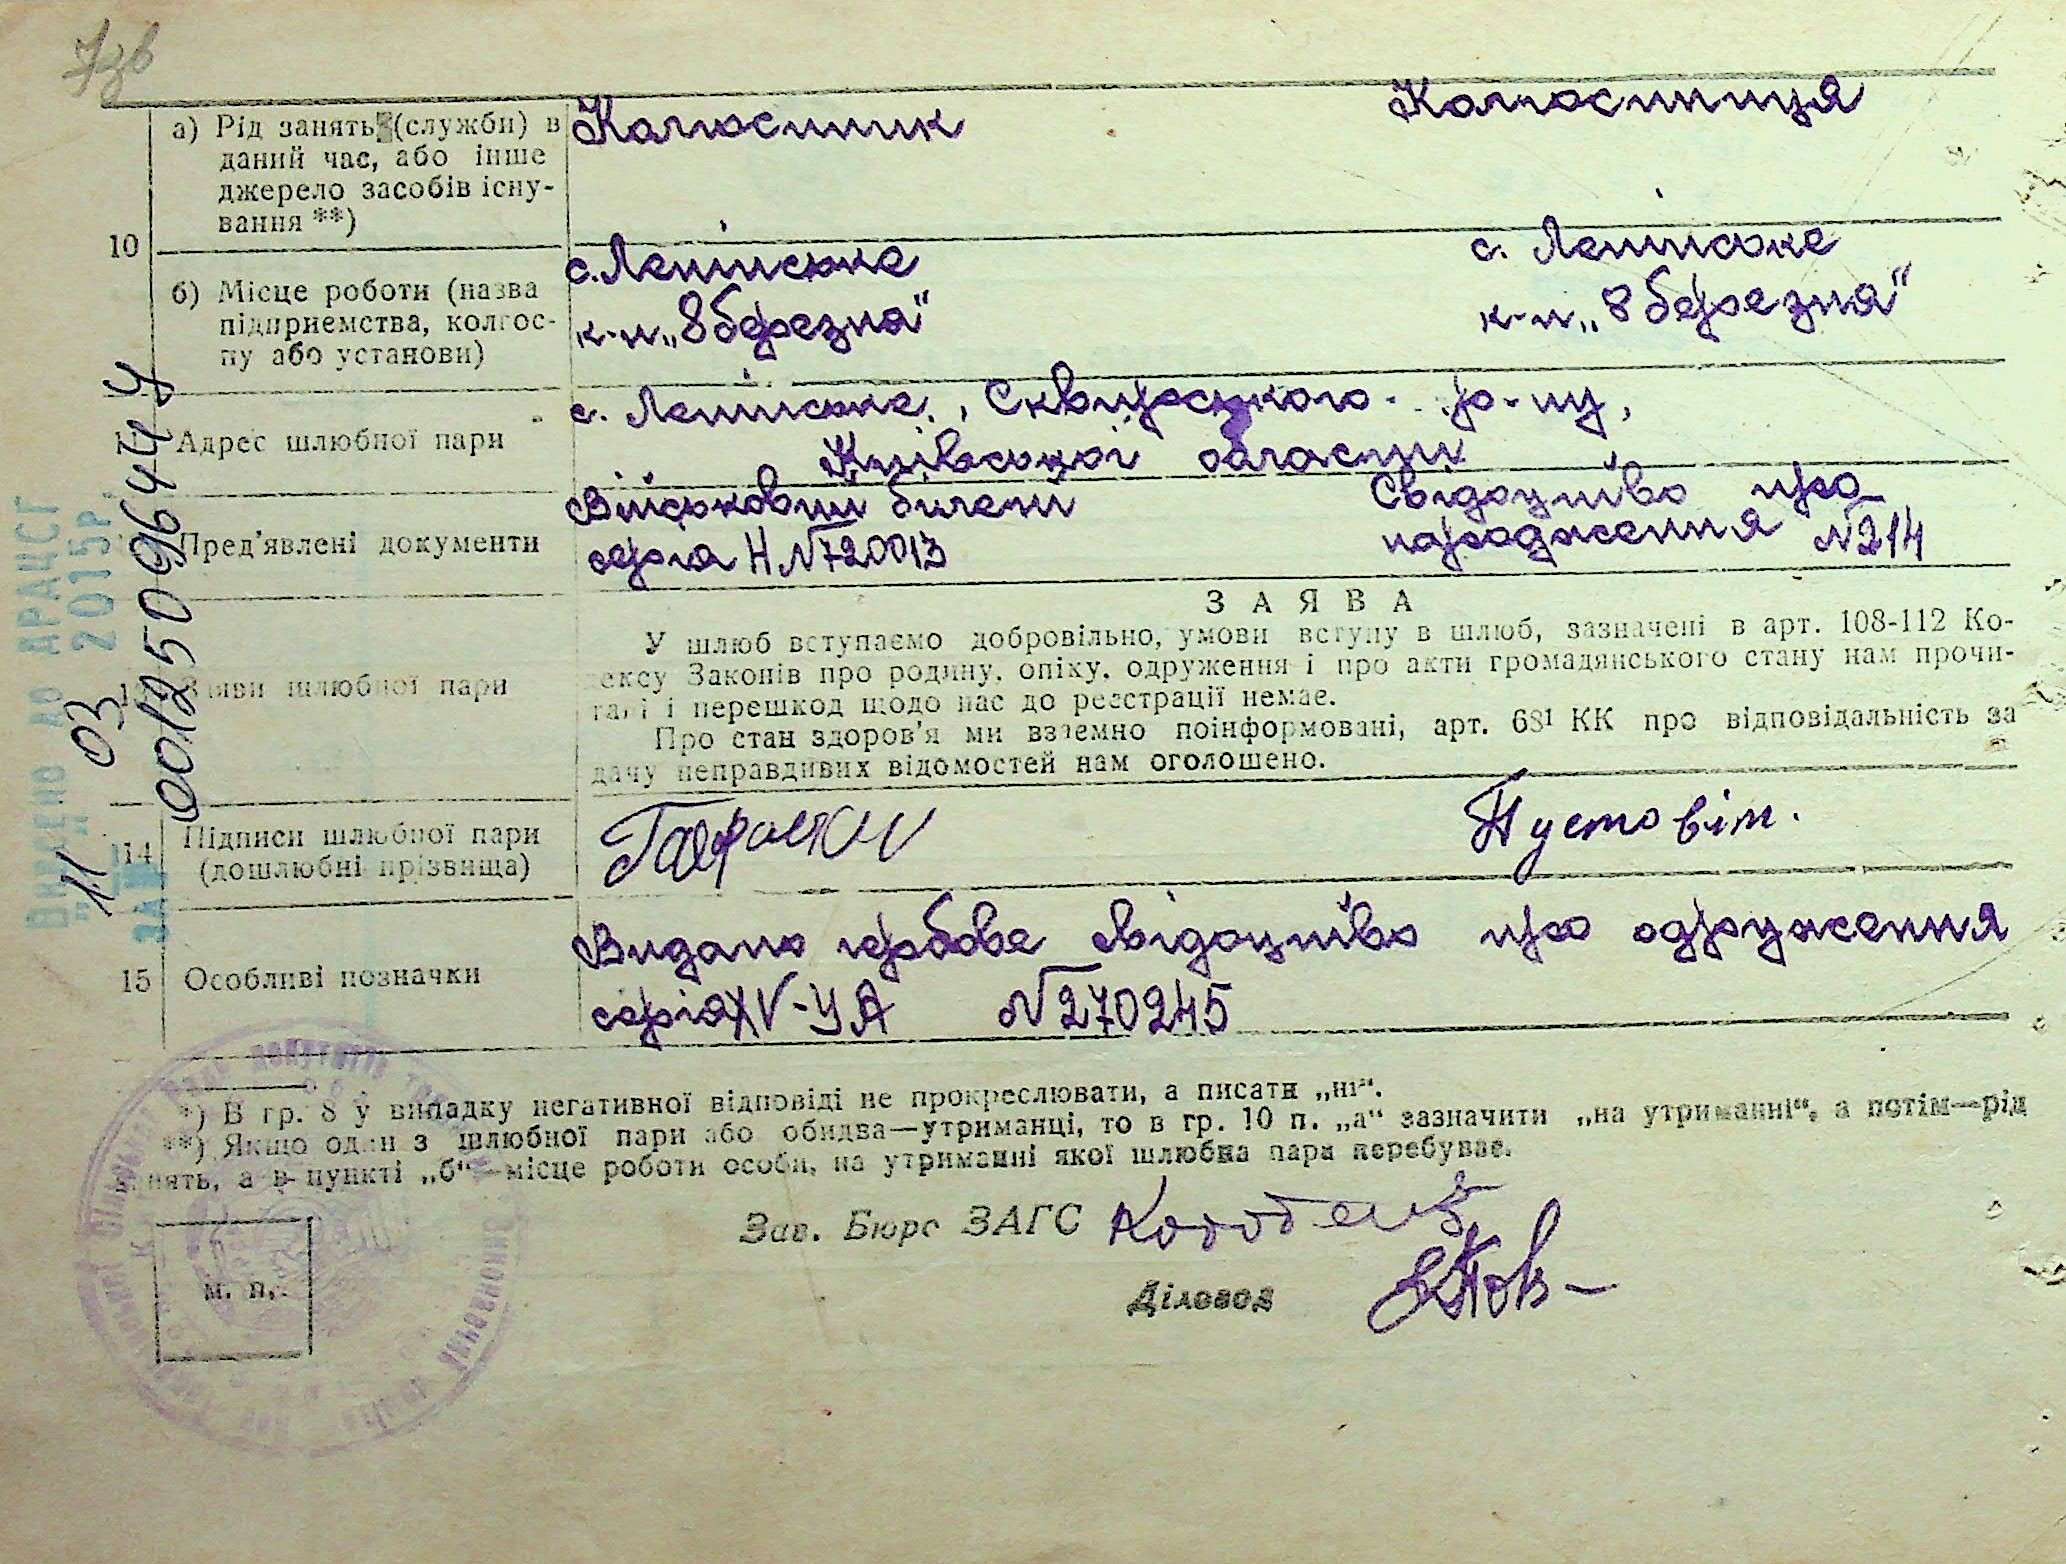 а) Рід занять (служби) в
даний час, або інше
джерело засобів існу-
вання **)
Колгоспник
Колгоспниця
10
б) Місце роботи (назва
підприємства, колгос-
пу або установи)
с. Ленінське
к-п „8 березня"
с. Ленінське
к-п „8 березня"
Адрес шлюбної пари
с. Ленінське, Сквирського р-ну,
Київської області
Пред'явлені документи
Військовий білет
серія Н №720013
Свідоцтво про
народження №214
Заяви шлюбної пари
ЗАЯВА
У шлюб вступаємо добровільно, умови вступу в шлюб, зазначені в арт. 108-112 Ко-
дексу Законів про родину, опіку, одруження і про акти громадянського стану нам прочи-
тані і перешкод щодо нас до реєстрації немає.
Про стан здоров'я ми взаємно поінформовані, арт. 68¹ КК про відповідальність за
дачу неправдивих відомостей нам оголошено.
14
Підписи шлюбної пари
(дошлюбні прізвища)
Пустовіт.
15
Особливі позначки
Видано гербове свідоцтво про одруження
серія XV-УА №270245
*) В гр. 8 у випадку негативної відповіді не прокреслювати, а писати „ні".
**) Якщо один з шлюбної пари або обидва—утриманці, то в гр. 10 п. „а" зазначити „на утриманні", а потім—рід
занять, а в пункті „б"—місце роботи особи, на утриманні якої шлюбна пара перебуває.
Зав. Бюро ЗАГС
Діловод
м. п.
Внесено до ДРАЦСГ
"11" 03 2015р.
ЗА №
00125096444